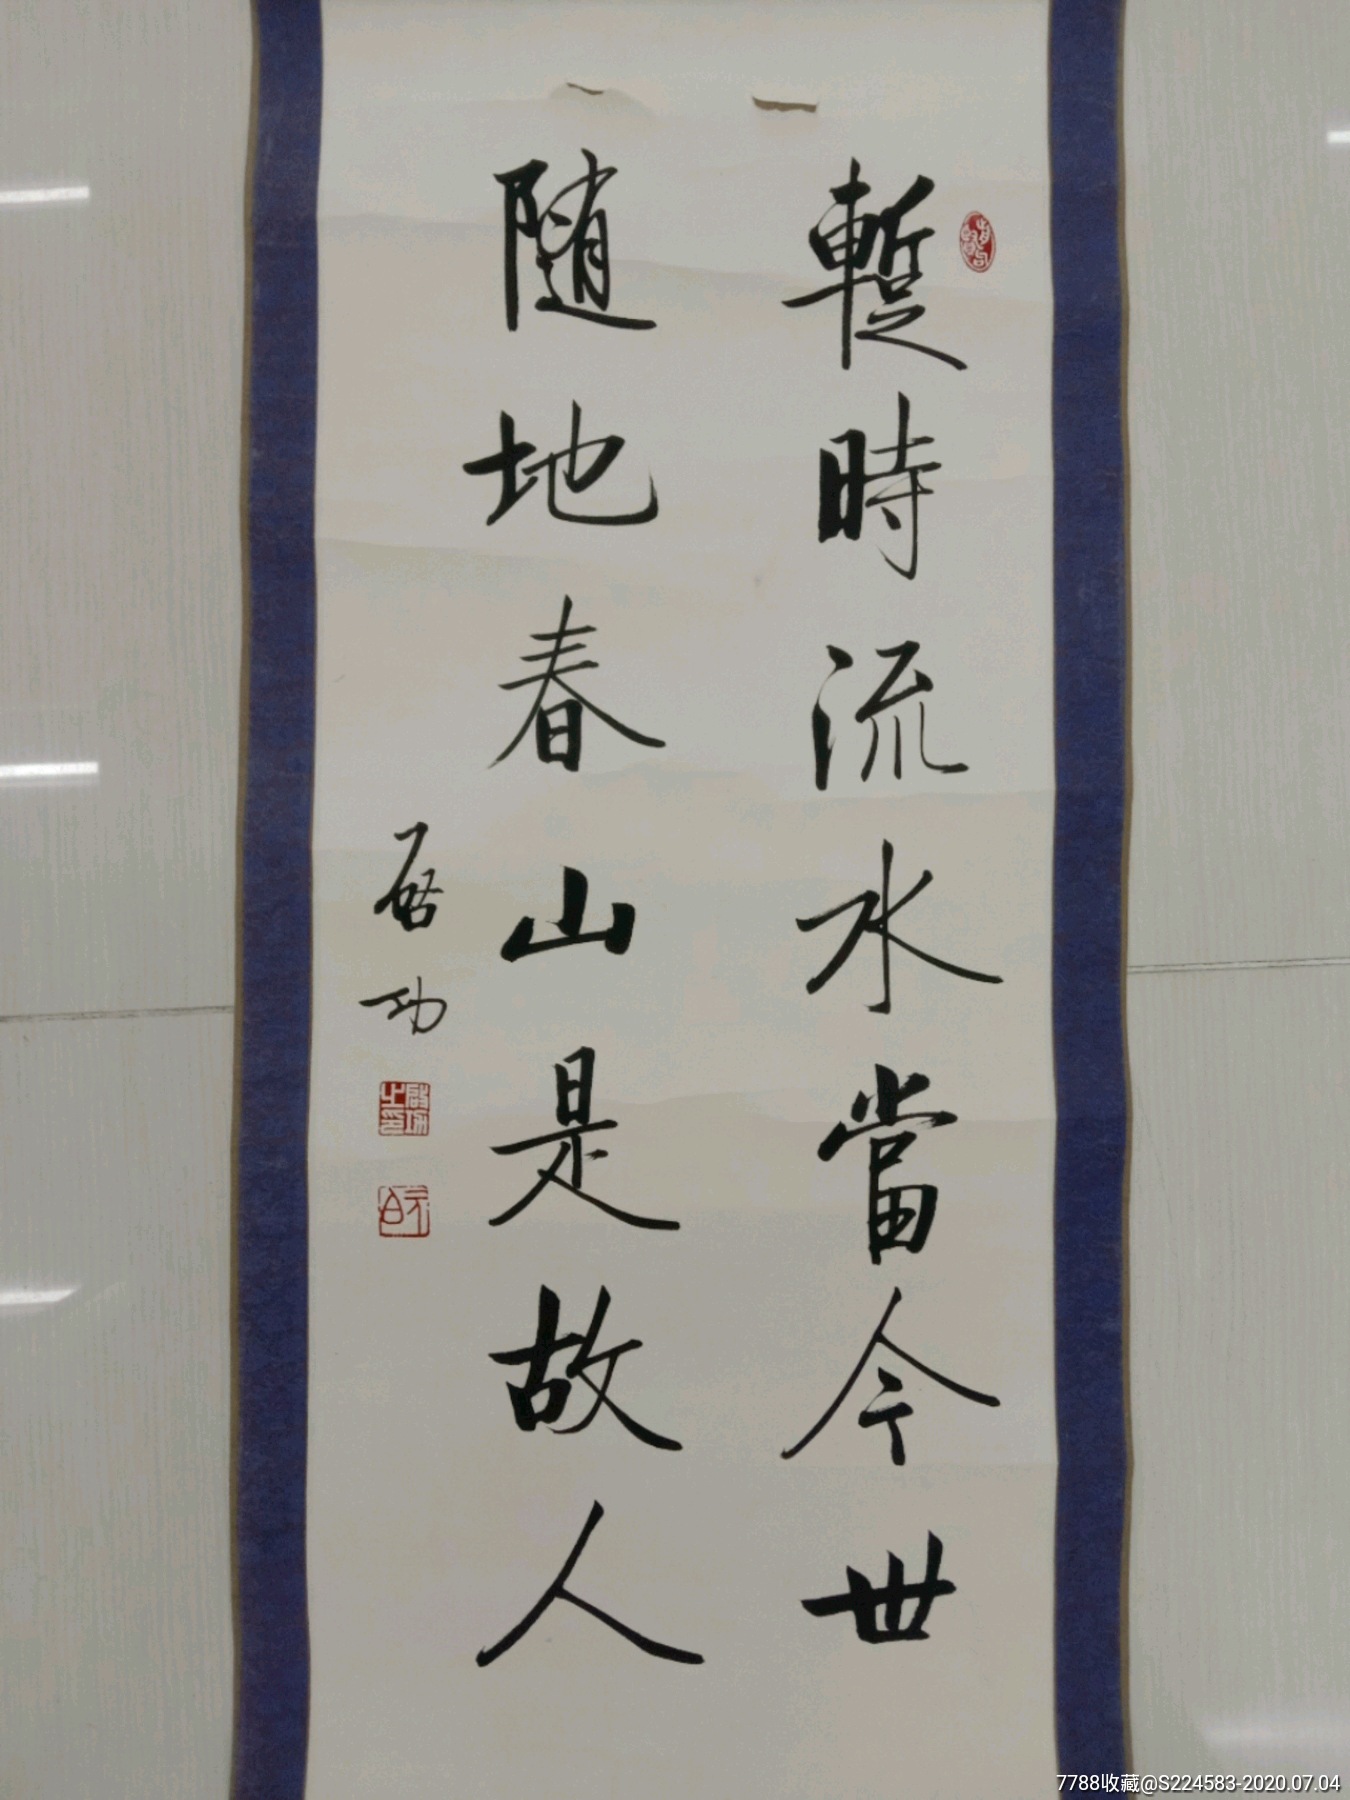 暫時流水當今世
随地春山是故人
啓功
啟功之印
元白
7788收藏@S224583-2020.07.04